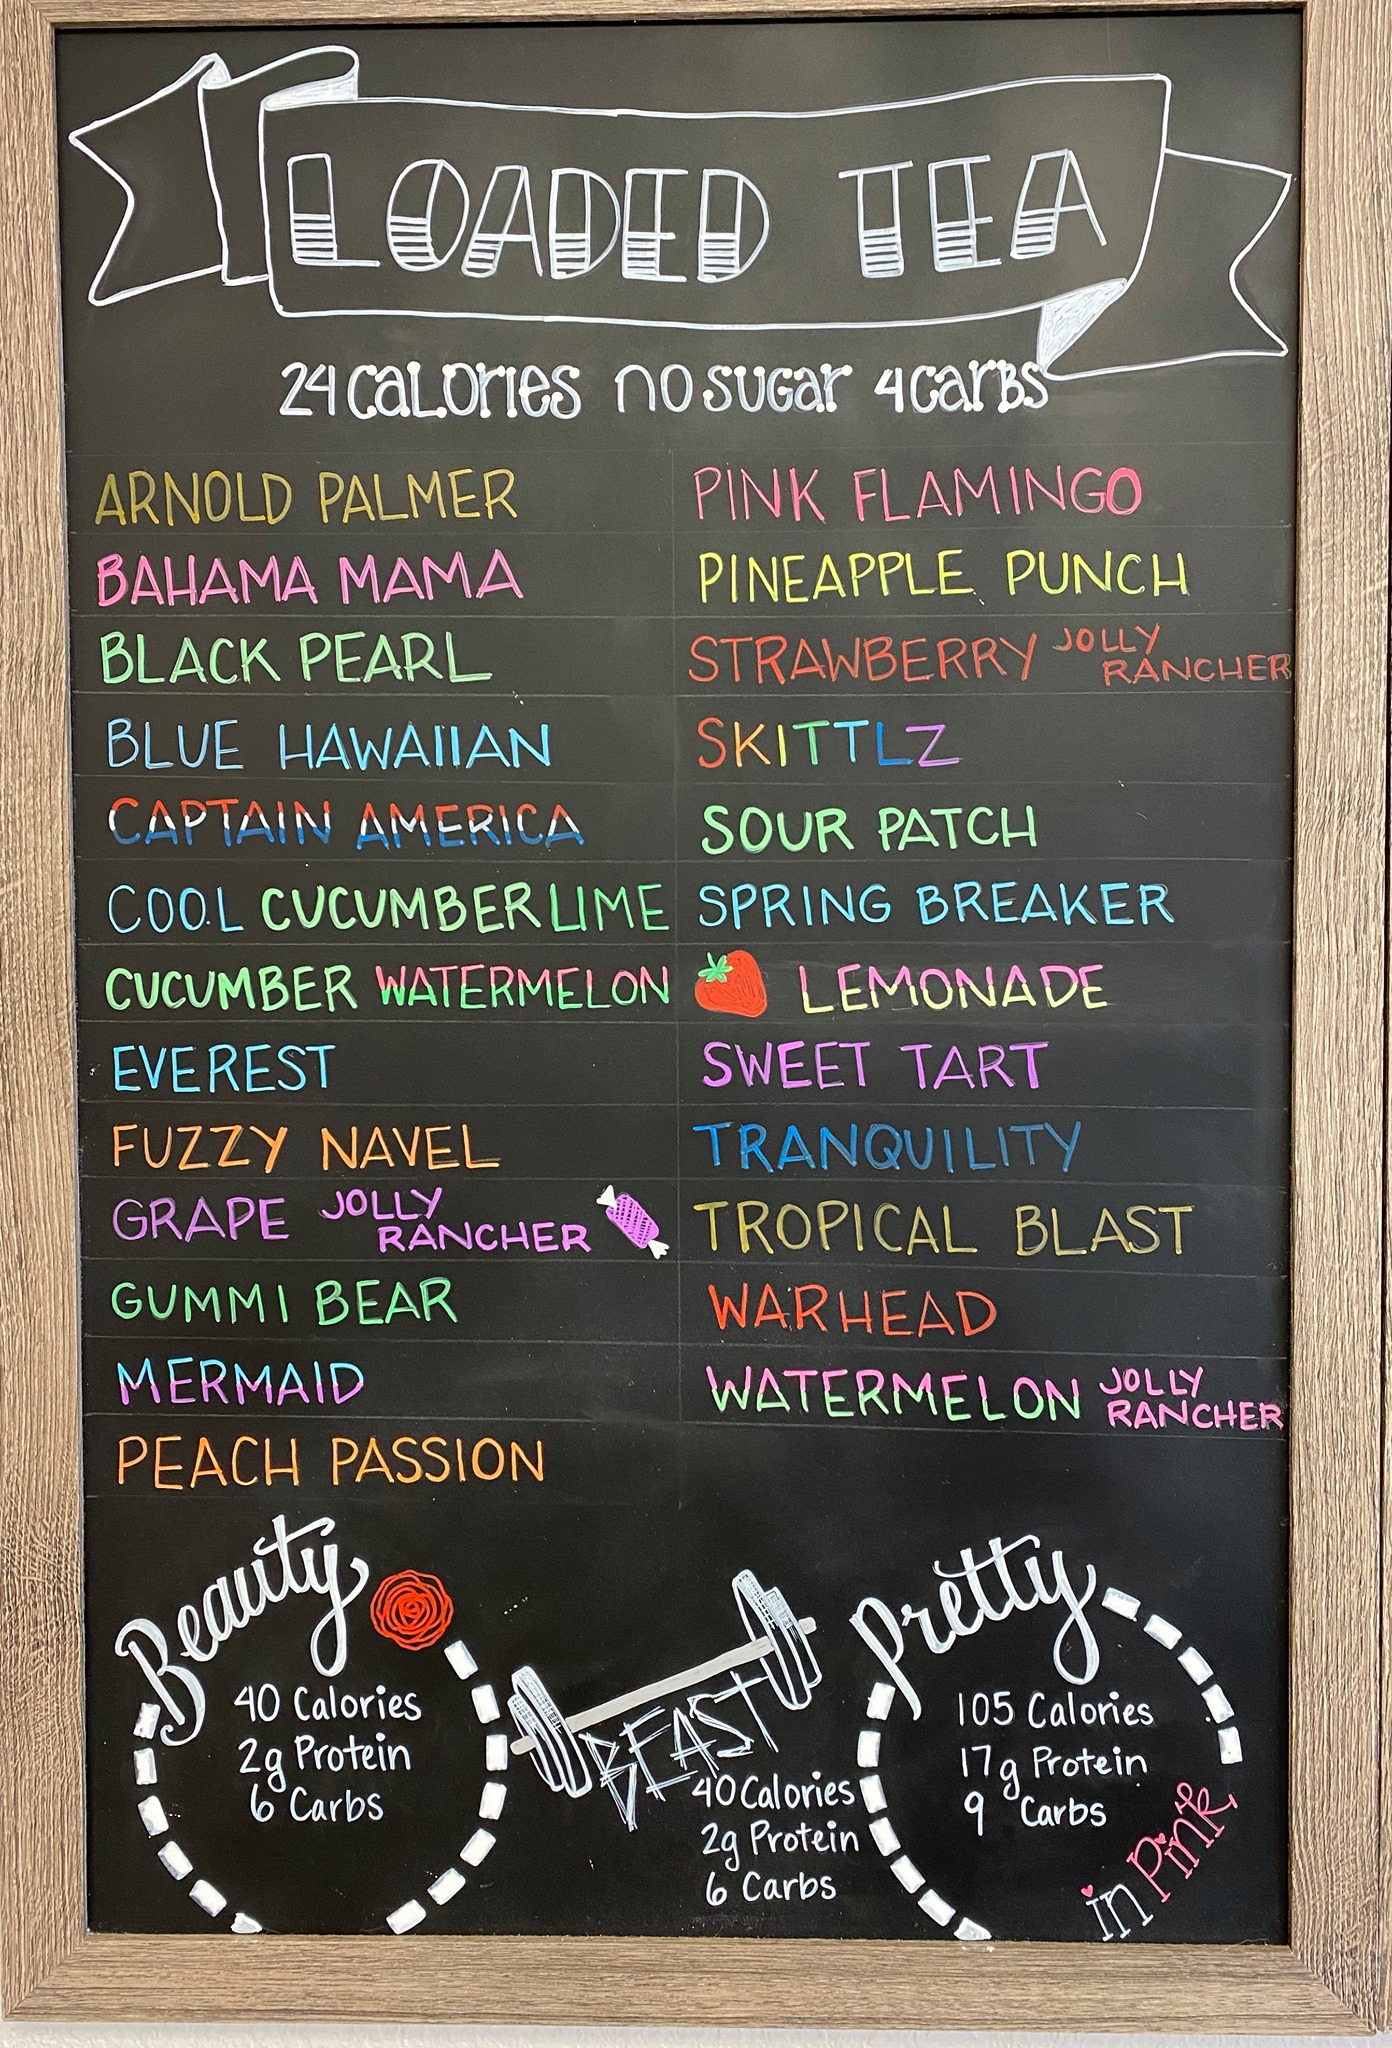 LOADED TEA
24 CALORIES NO SUGAR 4 CARBS
ARNOLD PALMER
BAHAMA MAMA
BLACK PEARL
BLUE HAWAIIAN
CAPTAIN AMERICA
COOL CUCUMBER LIME
CUCUMBER WATERMELON
EVEREST
FUZZY NAVEL
GRAPE JOLLY RANCHER
GUMMI BEAR
MERMAID
PEACH PASSION
PINK FLAMINGO
PINEAPPLE PUNCH
STRAWBERRY JOLLY RANCHER
SKITTLZ
SOUR PATCH
SPRING BREAKER
LEMONADE
SWEET TART
TRANQUILITY
TROPICAL BLAST
WARHEAD
WATERMELON JOLLY RANCHER
Beauty
40 Calories
2g Protein
6 Carbs
BEAST
40 Calories
2g Protein
6 Carbs
Pretty
105 Calories
17g Protein
9 Carbs
in Pink